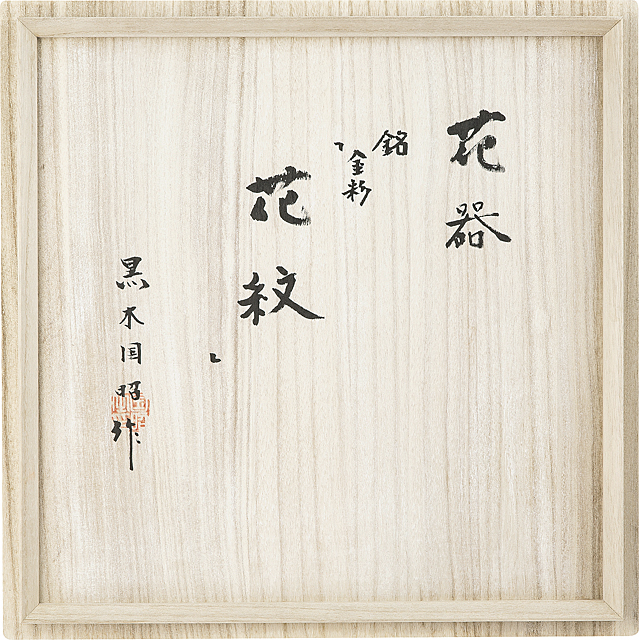 花器
銘
「金彩
花紋」
黒木国昭作